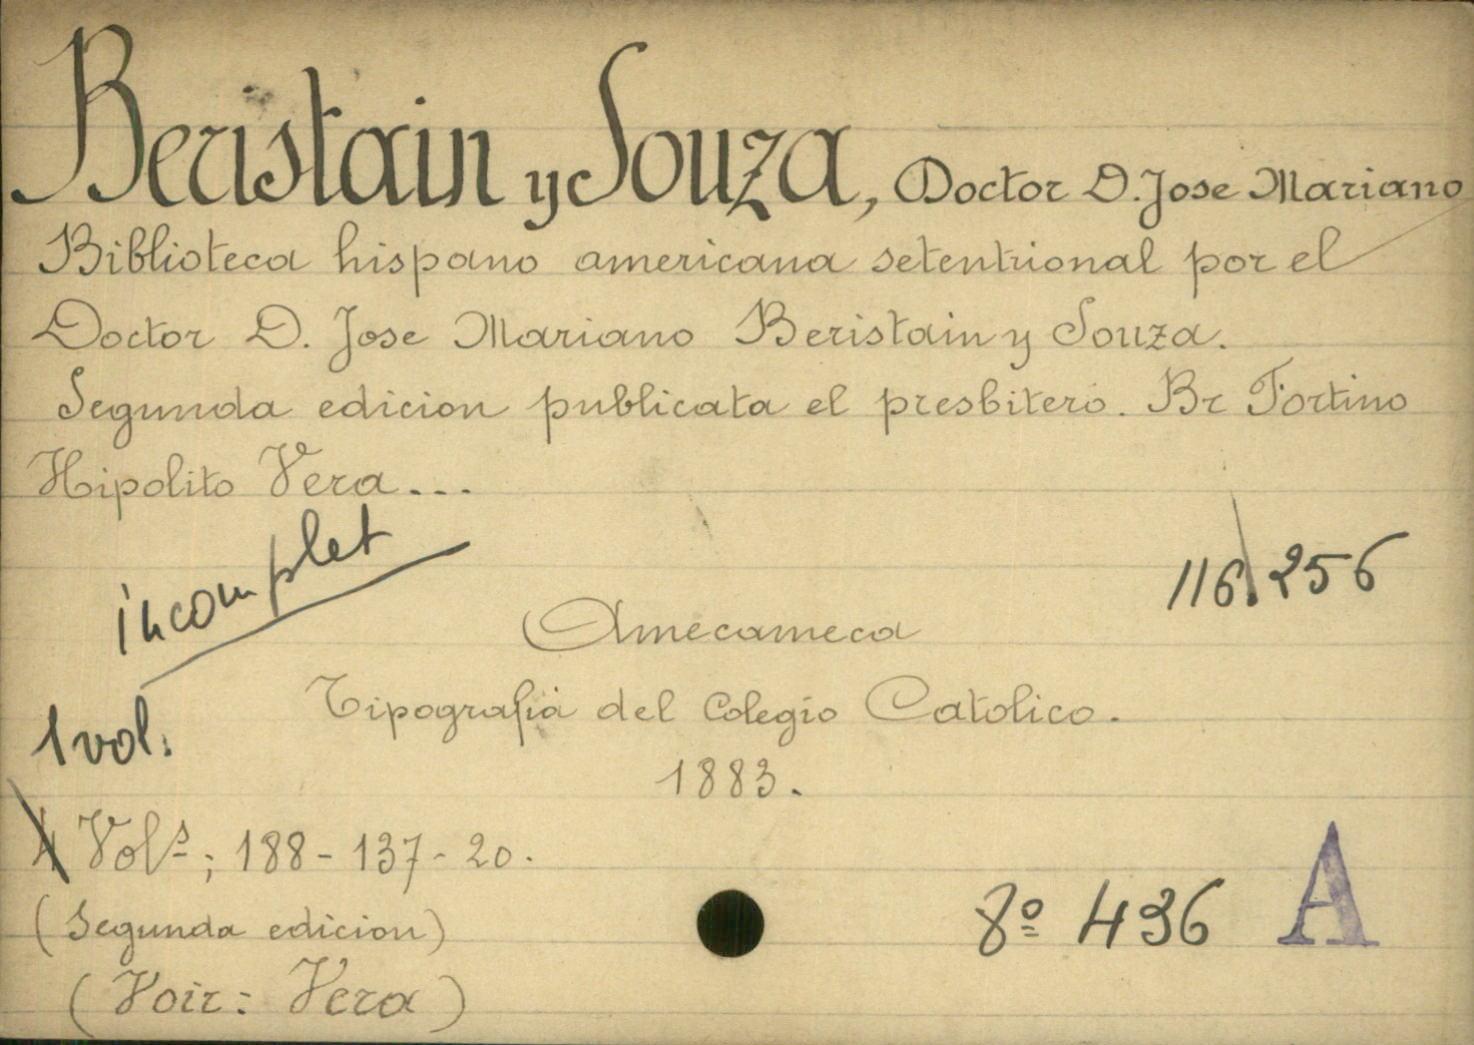 Beristain y Souza, Doctor D. Jose Mariano
Biblioteca hispano americana setentrional por el
Doctor D. Jose Mariano Beristain y Souza.
Segunda edicion publicata el presbitero. Br Fortino
Hipolito Vera...
incomplet
116.256
Amecameca
Tipografia del Colegio Catolico.
1 vol.
1883.
4 Vols; 188-137-20.
(Segunda edicion)
8º 436 A
(Voir: Vera)